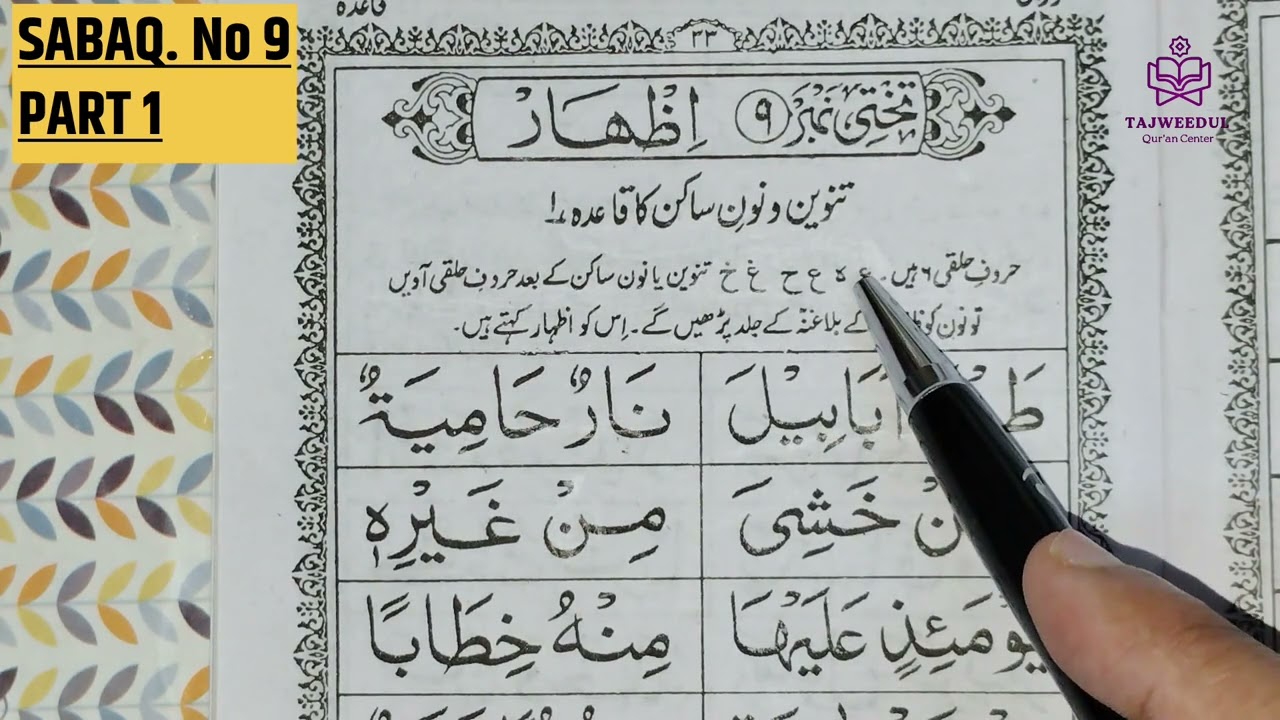 SABAQ. No 9
PART 1
قاعدہ
٣٣
TAJWEEDUL
Qur'an Center
تختی نمبر ٩ اِظْهَار
تنوین و نونِ ساکن کا قاعدہ ۱
حروفِ حلقی ۶ ہیں۔ ء ہ ع ح غ خ تنوین یا نون ساکن کے بعد حروفِ حلقی آویں
تو نون کو کے بلا غنّہ کے جلد پڑھیں گے۔ اِس کو اظہار کہتے ہیں۔
اَبَابِيْلَ نَارٌ حَامِيَةٌ
خَشِىَ مِنْ غَيْرِهٖ
يَوْمَئِذٍ عَلَيْهَا مِنْهُ خِطَابًا